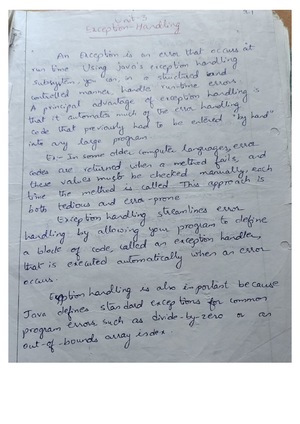 Unit-3
Exception Handling
An Exception is an error that occurs at
run time. Using Java's exception handling
subsystem you can, in a structured and
controlled manner handle runtime errors.
A principal advantage of exception handling is
that it automates much of the error handling
code that previously had to be entered "by hand"
into any large program.
Ex:- In some older computer languages, error
codes are returned when a method fails, and
these values must be checked manually, each
time the method is called. This approach is
both tedious and erro-prone.
Exception handling streamlines error
handling by allowing your program to define
a block of code, called an exception handler,
that is executed automatically when an error
occurs.
Exception handling is also important because
Java defines standard exceptions for common
program errors, such as divide-by-zero or an
out-of-bounds array index.